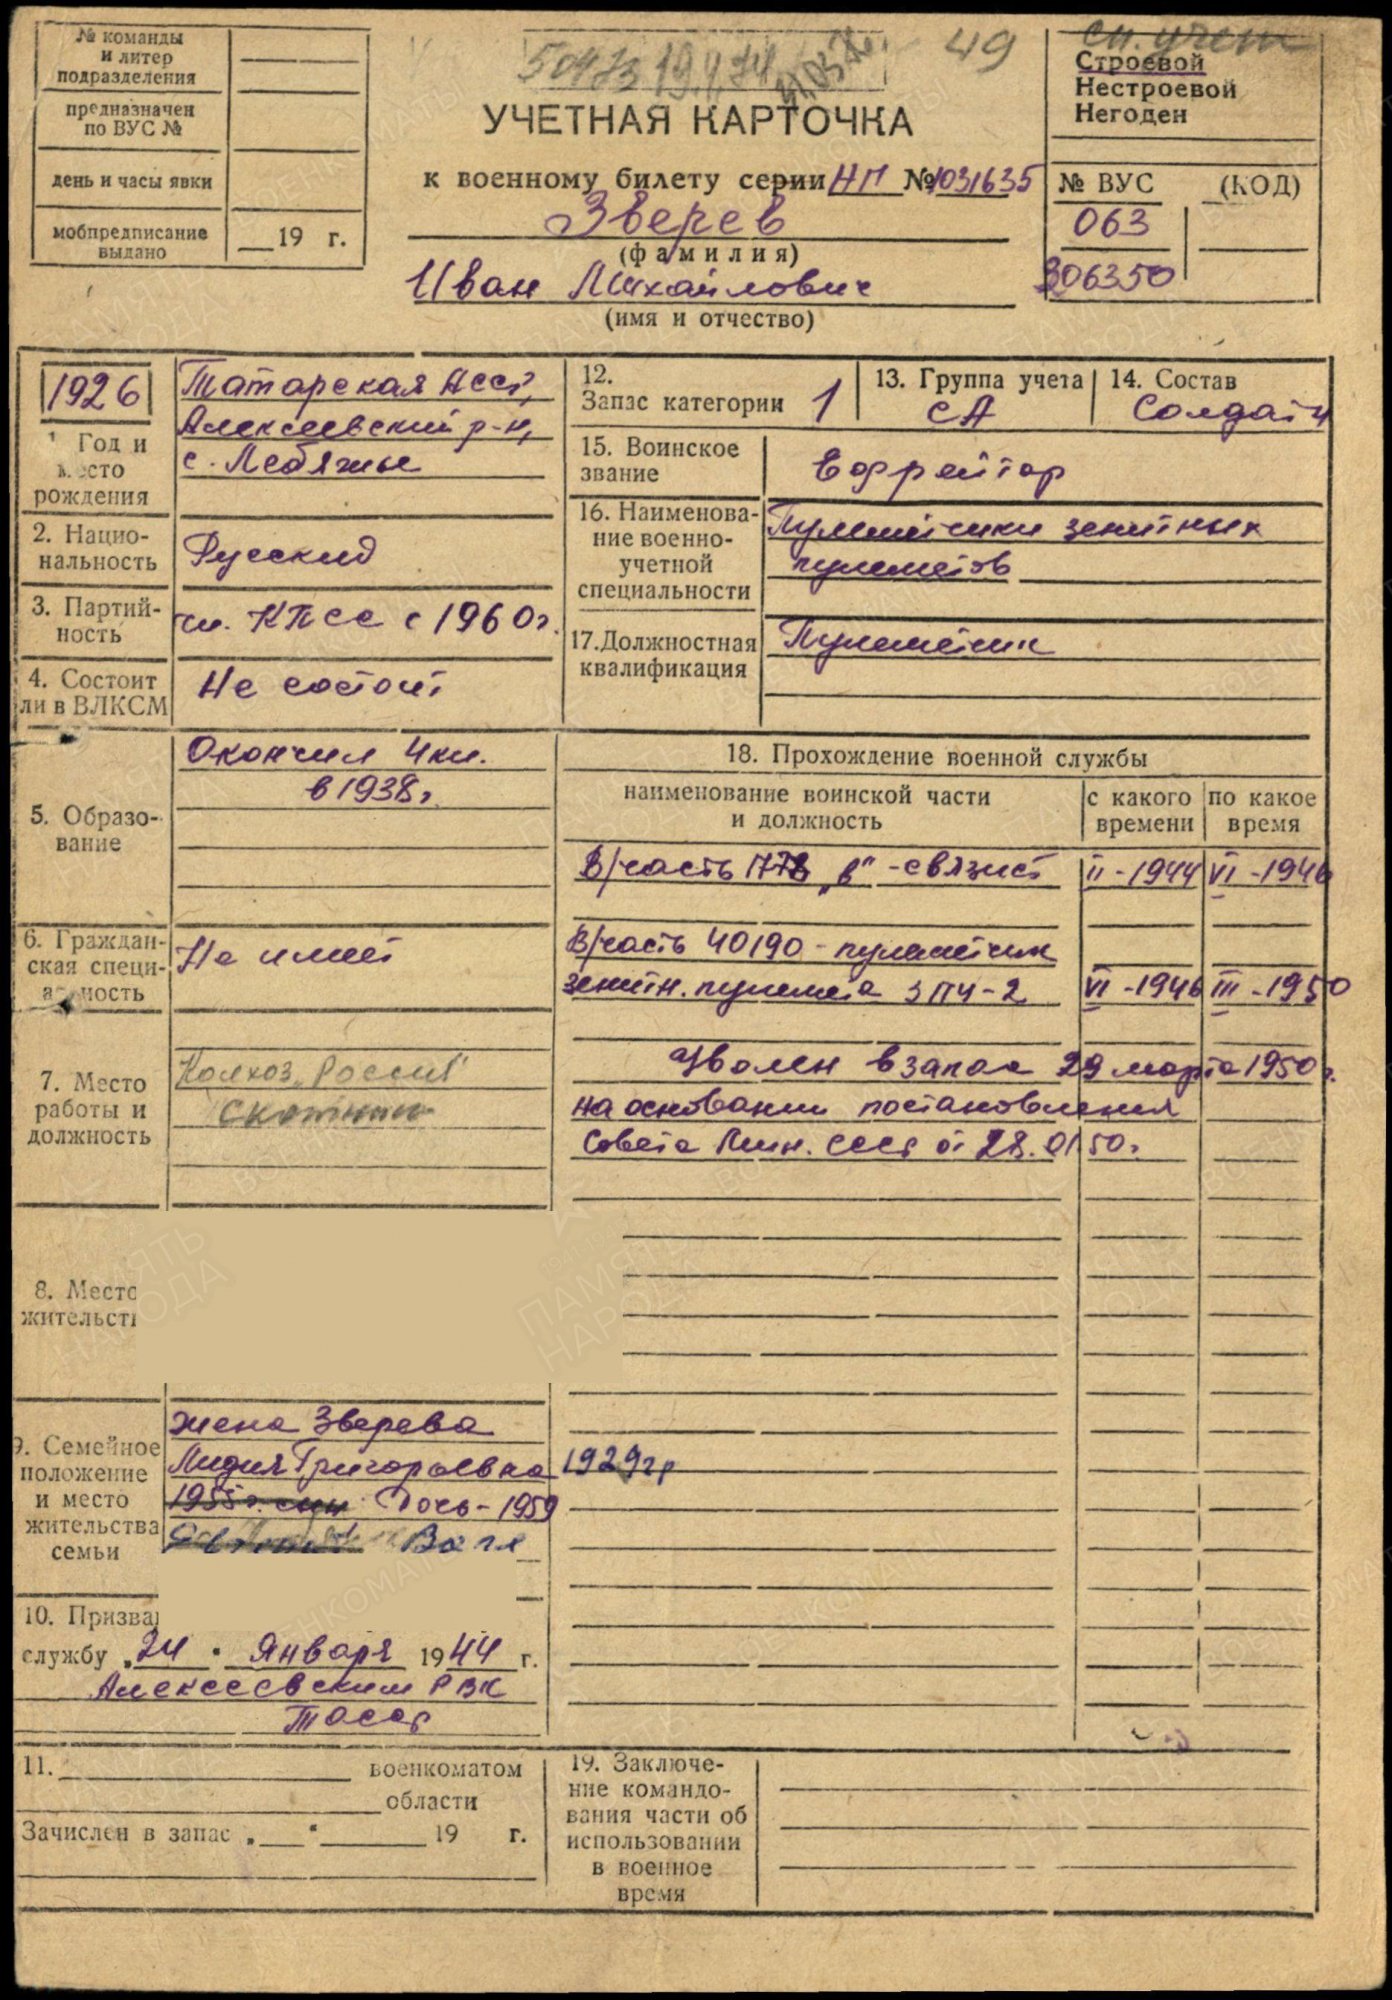 № команды
и литер
подразделения
предназначен
по ВУС №
день и часы явки
мобпредписание
выдано
19 г.
49
сп. учет
Строевой
Нестроевой
Негоден
УЧЕТНАЯ КАРТОЧКА
к военному билету серии НП № 1031635
Зверев
(фамилия)
Иван Михайлович
(имя и отчество)
№ ВУС (КОД)
063
306350
1926
1. Год и
место
рождения
Татарская АССР,
Алексеевский р-н,
с. Лебяжье
2. Нацио-
нальность
Русский
3. Партий-
ность
чл. КПСС с 1960г.
4. Состоит
ли в ВЛКСМ
Не состоит
12.
Запас категории 1
13. Группа учета
СА
14. Состав
Солдаты
15. Воинское
звание
Ефрейтор
16. Наименова-
ние военно-
учетной
специальности
Пулеметчики зенитных
пулеметов
17. Должностная
квалификация
Пулеметчик
5. Образо-
вание
Окончил 4 кл.
в 1938г.
6. Граждан-
ская специ-
альность
Не имеет
7. Место
работы и
должность
Колхоз „Россия"
скотник
8. Место
жительст
9. Семейное
положение
и место
жительства
семьи
жена Зверева
Лидия Григорьевна 1929гр
1955г. сын Дочь - 1959
Валя
10. Призва
службу „24" Января 1944 г.
Алексеевским РВК
ТАССР
18. Прохождение военной службы
наименование воинской части
и должность
с какого
времени
по какое
время
В/часть 177 „в" - связист II - 1944 VI - 1946
В/часть 40190 - пулеметчик
зенитн. пулемета ЗПУ-2 VI - 1946 III - 1950
Уволен в запас 29 марта 1950г.
на основании постановления
Совета Мин. СССР от 28.01.50г.
11. военкоматом
области
Зачислен в запас „ " 19 г.
19. Заключе-
ние командо-
вания части об
использовании
в военное
время